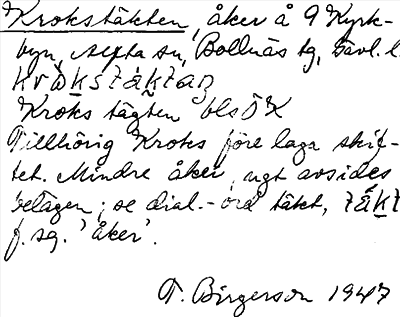 Krokstäkten, åker å 9 Kyrk-
byn, Alfta sn, Bollnäs tg, Gävl. l.
Kroks tägten blsÖK
Tillhörig Kroks före laga skif-
tet. Mindre åker, ngt avsides
belägen; se dial.-ord täkt,
f. sg. 'åker'.
T. Birgerson 1947